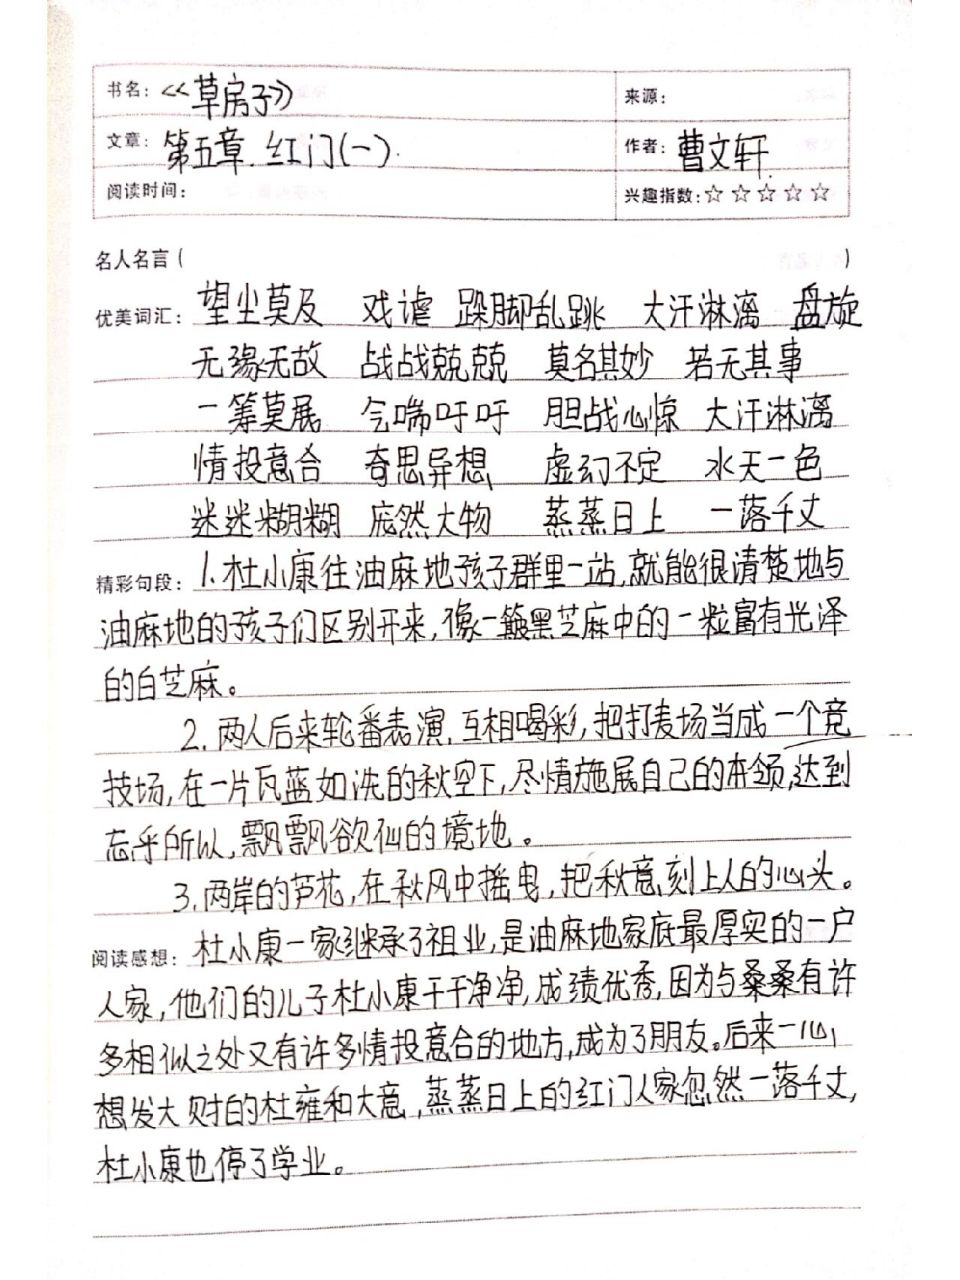 书名：《草房子》 来源：
文章：第五章.红门(一). 作者：曹文轩
阅读时间： 兴趣指数：☆☆☆☆☆
名人名言（ ）
优美词汇：望尘莫及 戏谑 跺脚乱跳 大汗淋漓 盘旋
无缘无故 战战兢兢 莫名其妙 若无其事
一筹莫展 气喘吁吁 胆战心惊 大汗淋漓
情投意合 奇思异想 虚幻不定 水天一色
迷迷糊糊 庞然大物 蒸蒸日上 一落千丈
精彩句段：1.杜小康往油麻地孩子群里一站,就能很清楚地与
油麻地的孩子们区别开来,像一簸黑芝麻中的一粒富有光泽
的白芝麻。
2.两人后来轮番表演,互相喝彩,把打麦场当成一个竞
技场,在一片瓦蓝如洗的秋空下,尽情施展自己的本领,达到
忘乎所以,飘飘欲仙的境地。
3.两岸的芦花,在秋风中摇曳,把秋意刻上人的心头。
阅读感想：杜小康一家继承了祖业,是油麻地家底最厚实的一户
人家,他们的儿子杜小康干干净净,成绩优秀,因为与桑桑有许
多相似之处又有许多情投意合的地方,成为了朋友。后来一心
想发大财的杜雍和大意,蒸蒸日上的红门人家忽然一落千丈,
杜小康也停了学业。